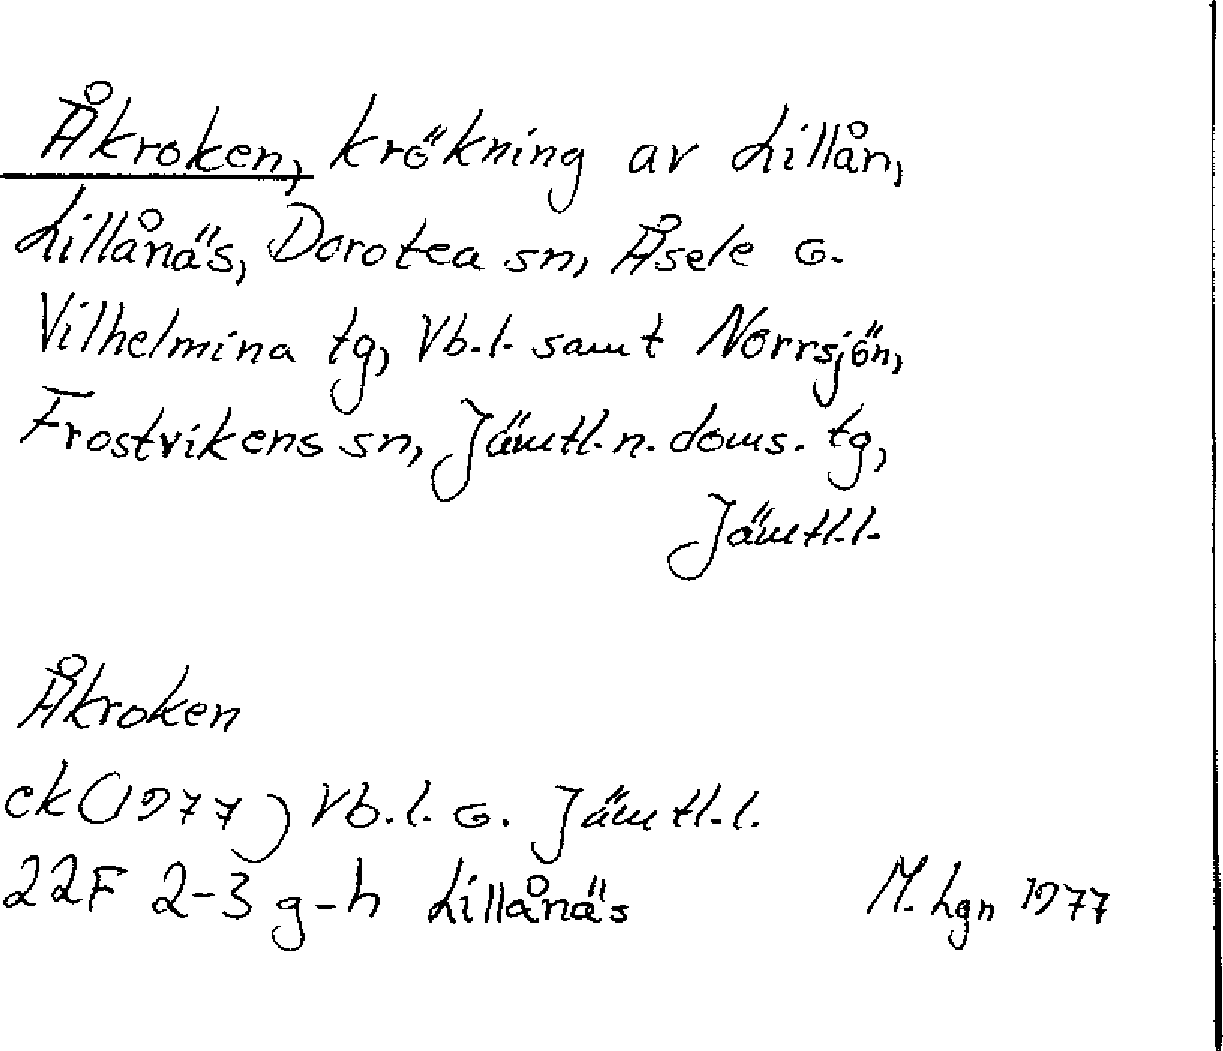 Åkroken, krökning av Lillån,
Lillånäs, Dorotea sn, Åsele o.
Vilhelmina tg, Vb.l. samt Norrsjön,
Frostvikens sn, Jämtl. n. doms. tg,
Jämtl.l.
Åkroken
ek (1977) Vb.l. o. Jämtl.l.
22F 2-3 g-h Lillånäs M. Lgn 1977